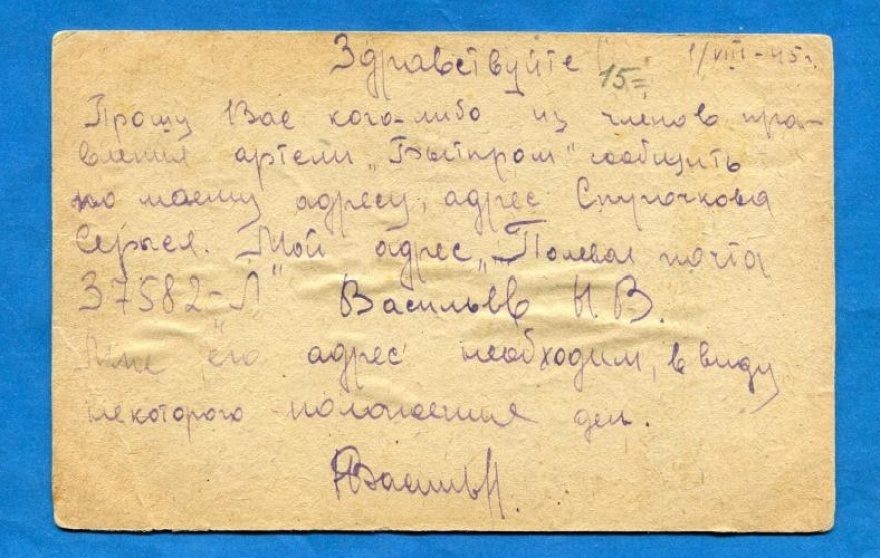 Здравствуйте 15= 1/VIII-45г.
Прошу Вас кого-либо из членов пра-
вления артели „Бытпром" сообщить
по моему адресу, адрес
Сергея. Мой адрес „Полевая почта
37582-Л" Васильев Н. В.
Мне его адрес необходим, в виду
некоторого положения дел.